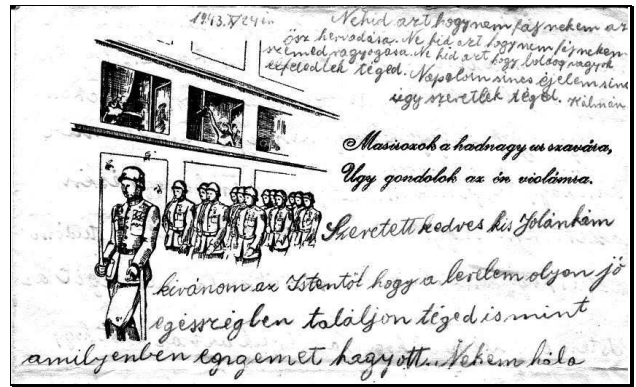 1943. IV 24 én
Nehid azt hogy nem fáj nekem az
ősz hervadása. Ne hid azt hogy nem fáj nekem
szemed ragyogása. Ne hid azt hogy boldog vagyok
elfeledlek téged. Napolsin sincs éjelem sincs
úgy szeretlek téged. Kálmán
Masirozok a hadnagy ur szavára,
Ugy gondolok az én violámra.
Szeretett kedves kis Jolánkám
kivánom az Istentől hogy a levelem olyan jó
egésszégben találjon téged is mint
amilyenben engemet hagyott. Nekem hála